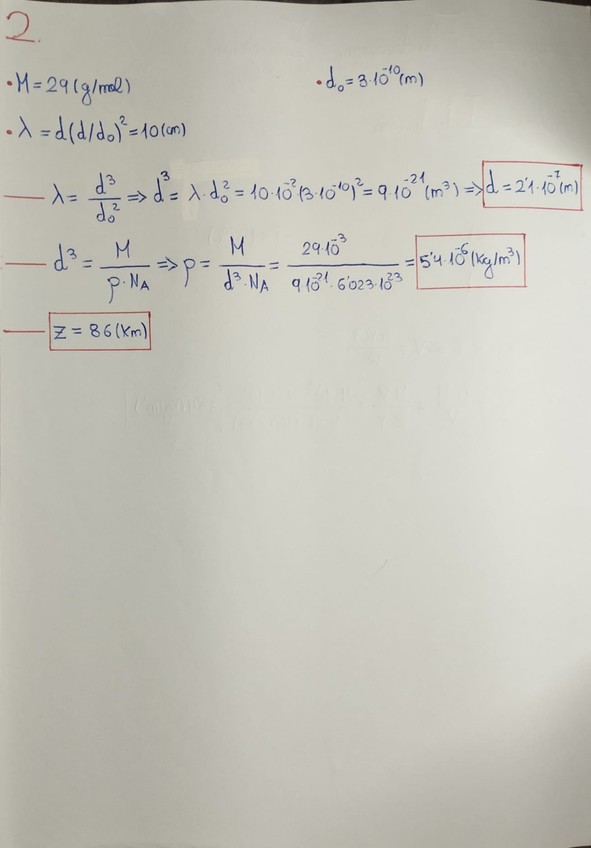 2.
• M = 29 (g/mol) • d₀ = 3·10⁻¹⁰ (m)
• λ = d(d/d₀)² = 10 (cm)
λ = d³/d₀² ⇒ d³ = λ·d₀² = 10·10⁻²(3·10⁻¹⁰)² = 9·10⁻²¹ (m³) ⇒ d = 2'1·10⁻⁷ (m)
d³ = M/ρ·N_A ⇒ ρ = M/d³·N_A = 29·10⁻³/9·10⁻²¹·6'023·10²³ = 5'4·10⁻⁶ (Kg/m³)
z = 86 (Km)